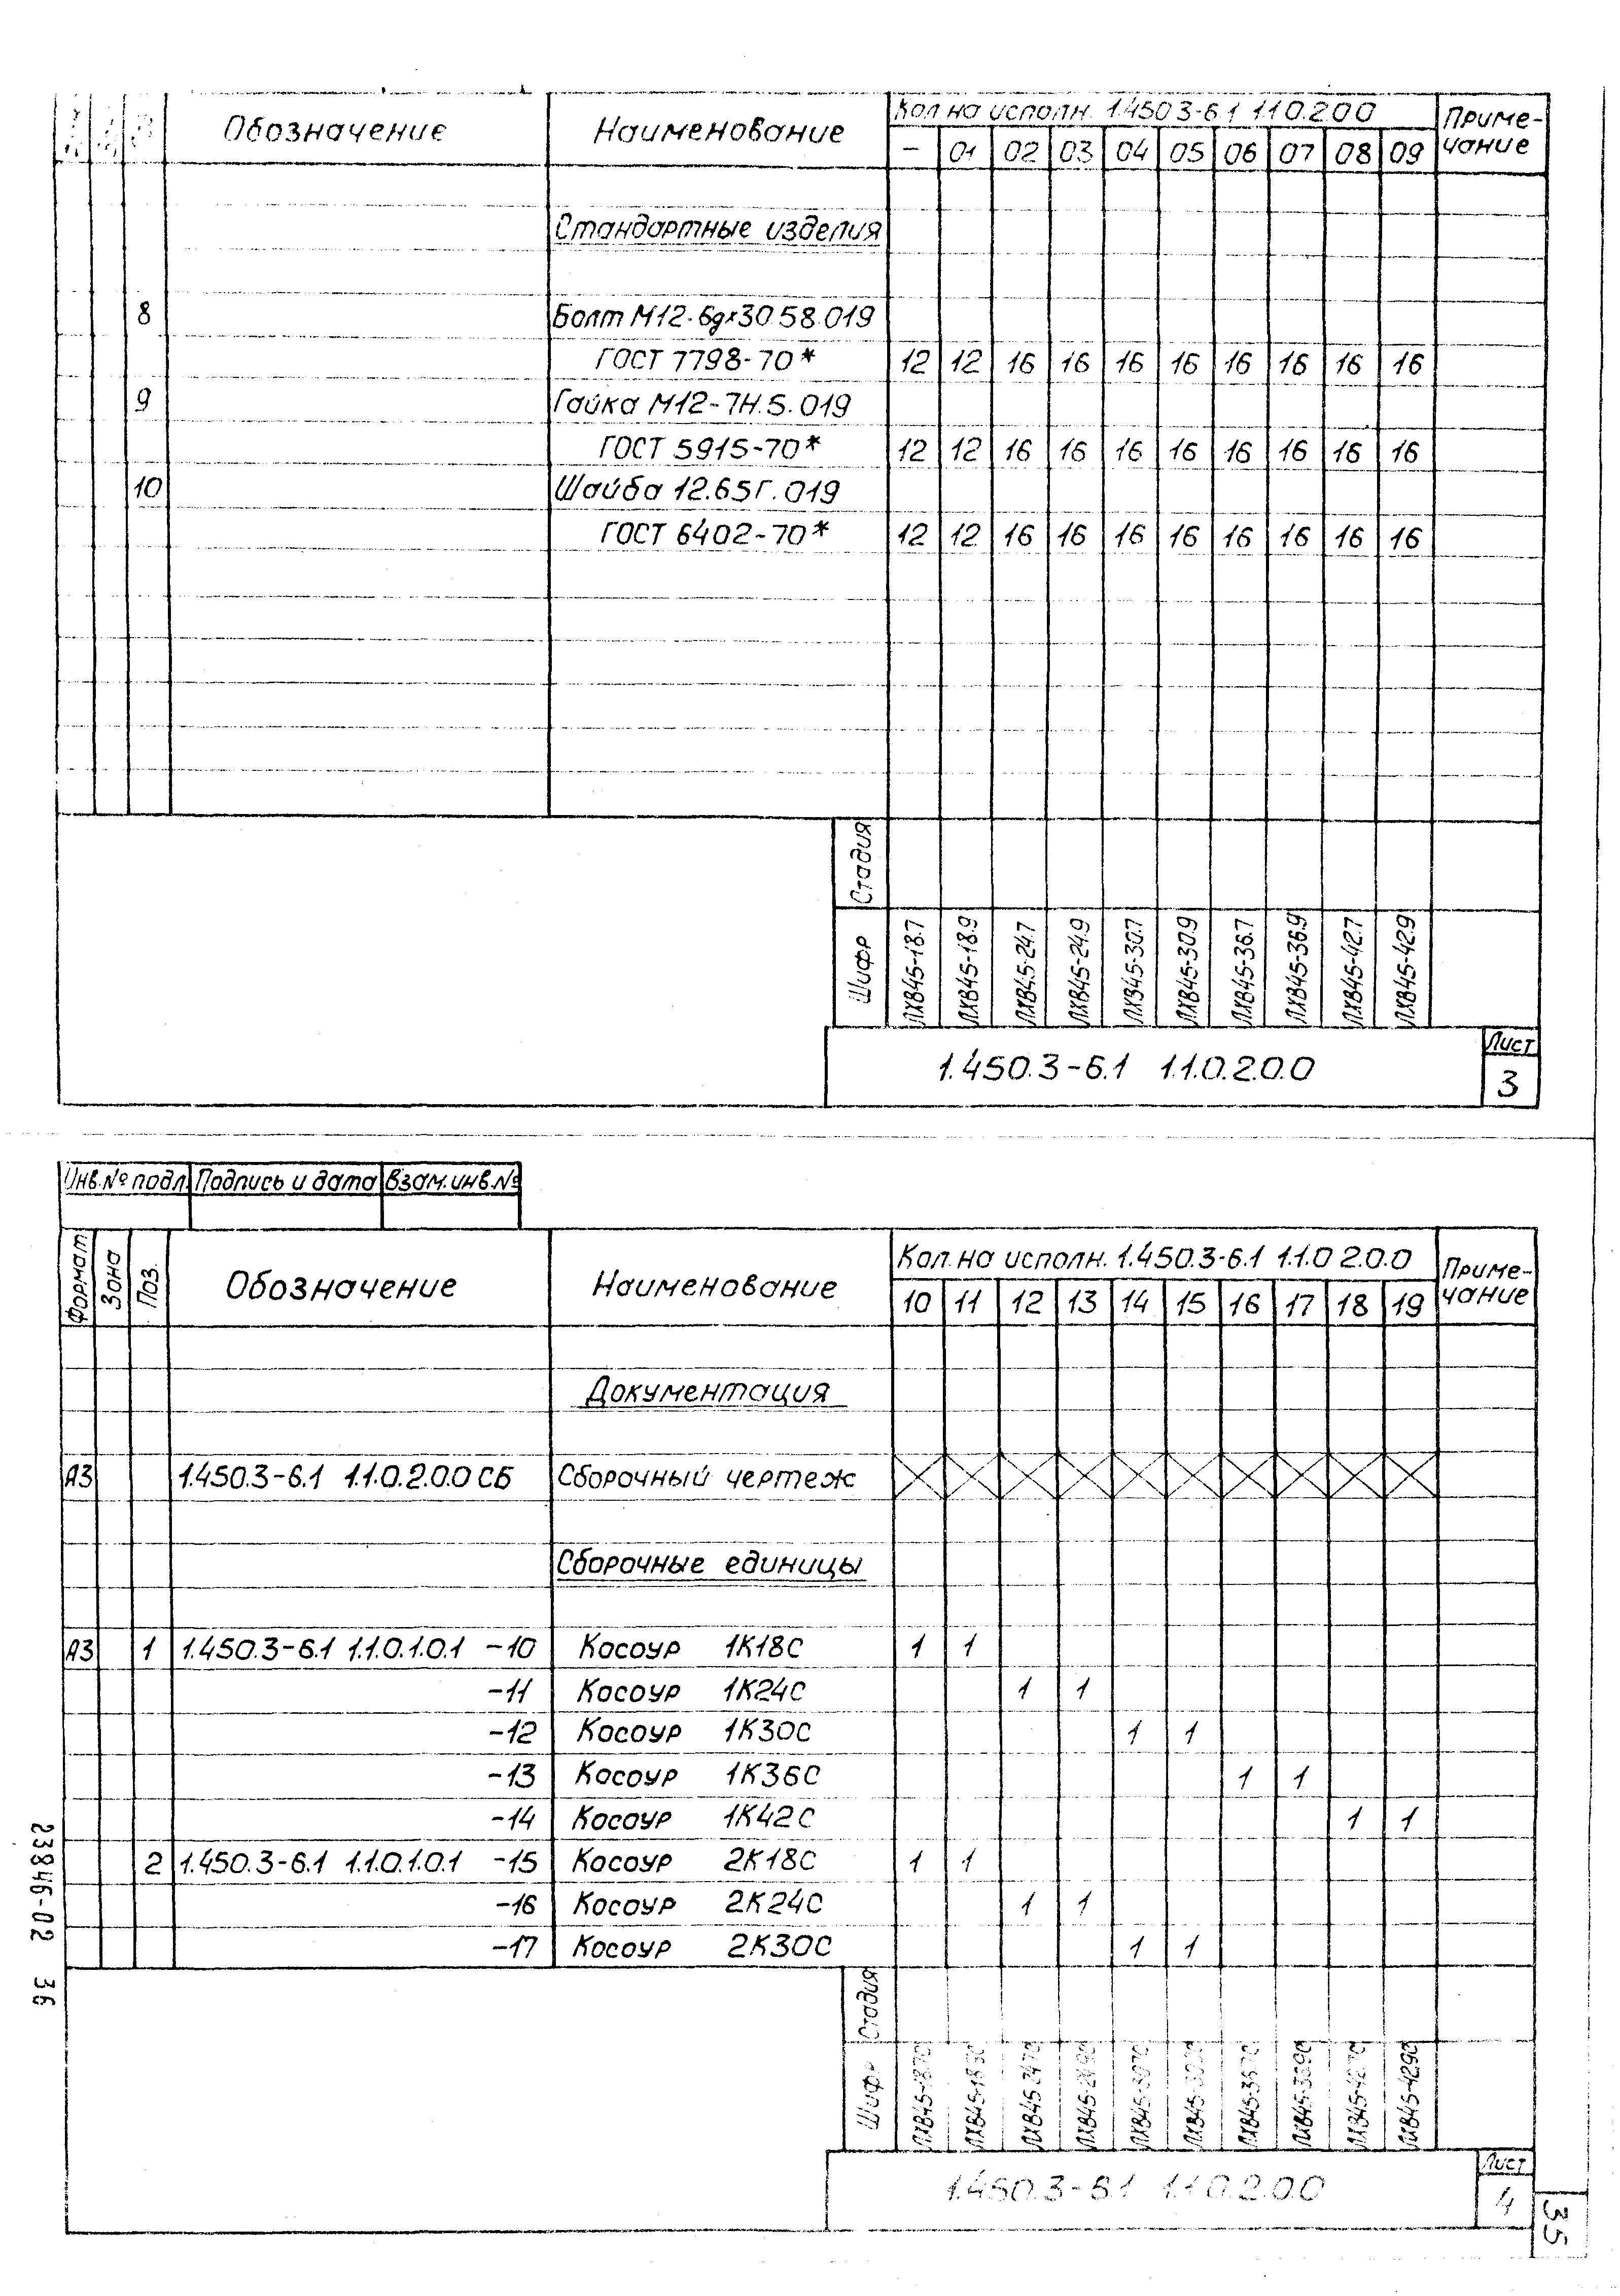 Обозначение Наименование Кол на исполн. 1.450 3-6.1 1.1.0.2.0.0 Приме-
чание
– 01 02 03 04 05 06 07 08 09
Стандартные изделия
8 Болт М12-6gх30.58.019
ГОСТ 7798-70* 12 12 16 16 16 16 16 16 16 16
9 Гайка М12-7Н.5.019
ГОСТ 5915-70* 12 12 16 16 16 16 16 16 16 16
10 Шайба 12.65Г.019
ГОСТ 6402-70* 12 12 16 16 16 16 16 16 16 16
Стадия
Шифр ЛХВ45-18.7 ЛХВ45-18.9 ЛХВ45-24.7 ЛХВ45-24.9 ЛХВ45-30.7 ЛХВ45-30.9 ЛХВ45-36.7 ЛХВ45-36.9 ЛХВ45-42.7 ЛХВ45-42.9
1.450.3-6.1 1.1.0.2.0.0
Лист
3
Инв.№ подл. Подпись и дата Взам.инв.№
Формат Зона Поз. Обозначение Наименование Кол. на исполн. 1.450.3-6.1 1.1.0 2.0.0 Приме-
чание
10 11 12 13 14 15 16 17 18 19
Документация
А3 1.450.3-6.1 1.1.0.2.0.0 СБ Сборочный чертеж
Сборочные единицы
А3 1 1.450.3-6.1 1.1.0.1.0.1 -10 Косоур 1К18С 1 1
-11 Косоур 1К24С 1 1
-12 Косоур 1К30С 1 1
-13 Косоур 1К36С 1 1
-14 Косоур 1К42С 1 1
2 1.450.3-6.1 1.1.0.1.0.1 -15 Косоур 2К18С 1 1
-16 Косоур 2К24С 1 1
-17 Косоур 2К30С 1 1
Стадия
Шифр ЛХВ45-42.9С
1.450.3-6.1 1.1.0.2.0.0
Лист
4
23846-02 36
35